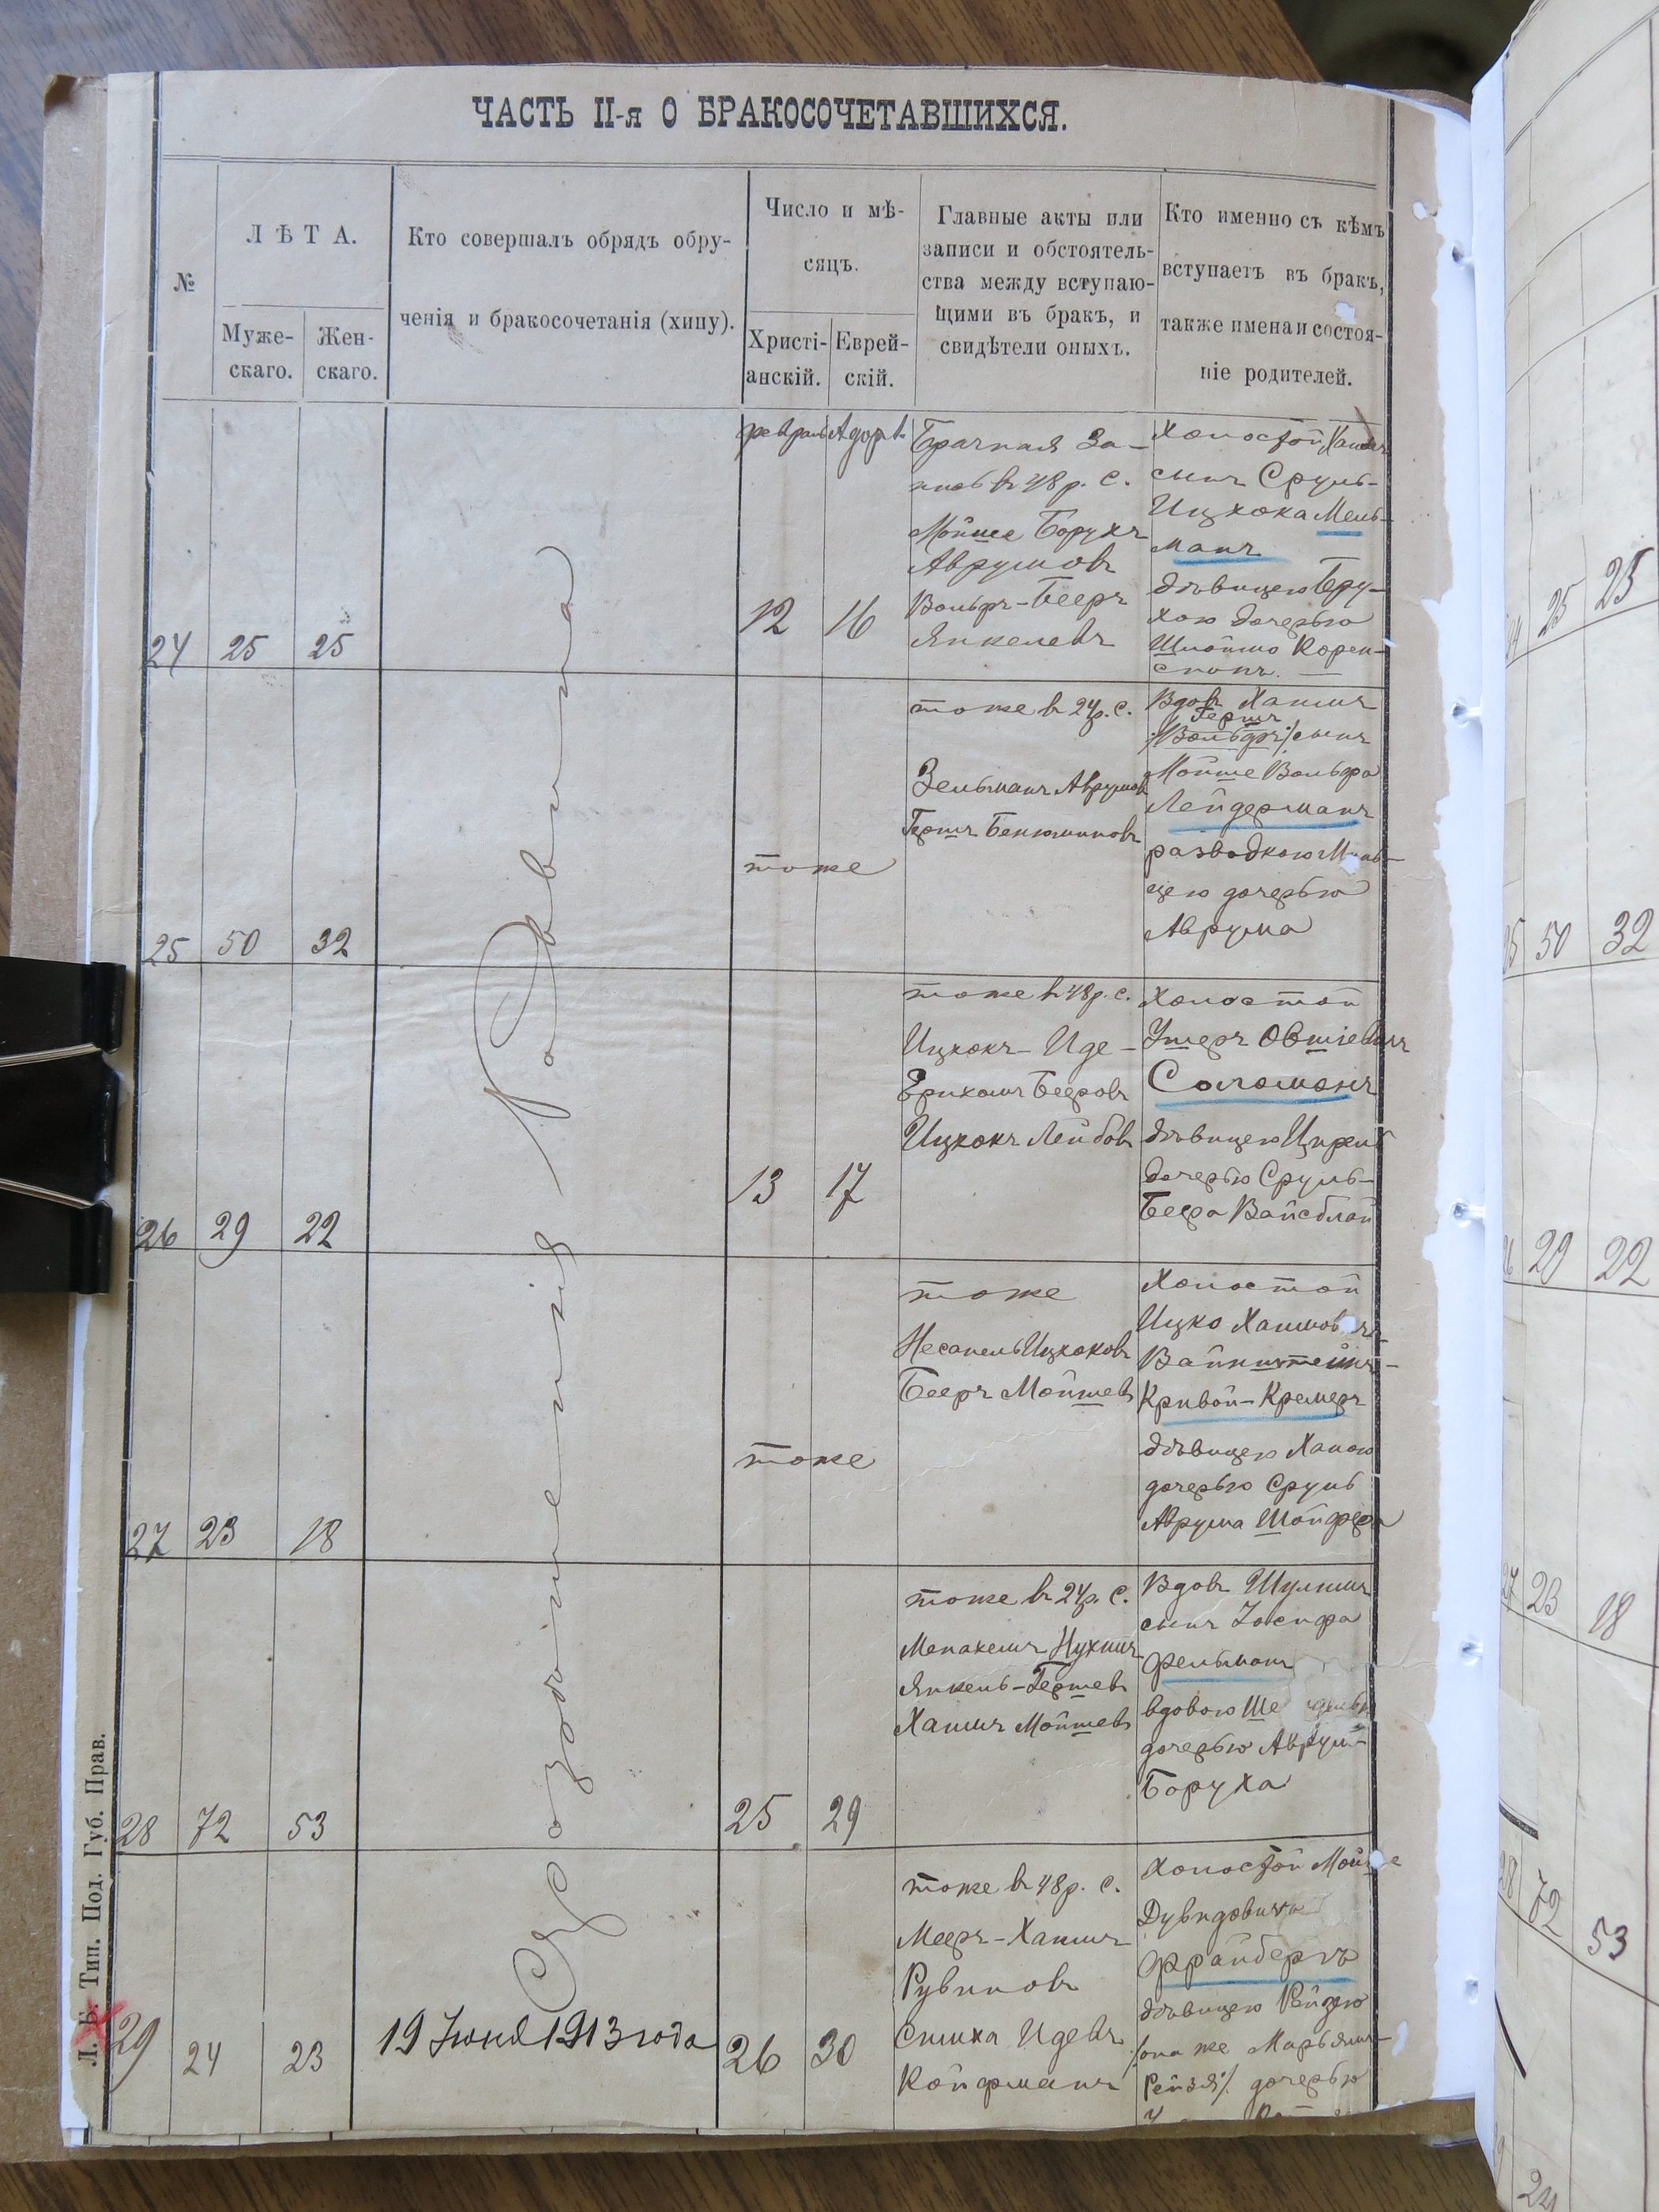 ЧАСТЬ II-я О БРАКОСОЧЕТАВШИХСЯ.
№
ЛѢТА.
Муже-
скаго.
Жен-
скаго.
Кто совершалъ обрядъ обру-
ченія и бракосочетанія (хипу).
Число и мѣ-
сяцъ.
Христі-
анскій.
Еврей-
скій.
Главные акты или
записи и обстоятель-
ства между вступаю-
щими въ бракъ, и
свидѣтели оныхъ.
Кто именно съ кѣмъ
вступаетъ въ бракъ,
также имена и состоя-
ніе родителей.
24
25
25
февраль
12
16
Брачная за-
пись въ 48 р. с.
Мойше Борухъ
Аврумовъ
Вольфъ-Бееръ
Янкелевъ
Холостой Хаимъ
сынъ Сруль-
Ицхока Мель-
манъ
дѣвицею Бру-
хою дочерью
Шлоймо Корен-
25
50
32
тоже
тоже въ 24 р. с.
Зельманъ Аврумовъ
Гершъ Бенюминовъ
Вдовъ Хаимъ
Гершъ
/Вольфъ/ сынъ
Мойше Вольфа
Лейдерманъ
разводкою
цею дочерью
Аврума
26
29
22
13
17
тоже въ 48 р. с.
Ицхокъ-Иде-
Ерихомъ Бееровъ
Ицхокъ Лейбовъ
Холостой
Ушеръ Овшіевичъ
Соломонъ
дѣвицею
дочерью Сруль-
Беера Вайсблай
27
23
18
тоже
тоже
Несанель Ицхоковъ
Бееръ Мойшевъ
Холостой
Ицко Хаимовичъ
Вайнштейнъ-
Кривой-Кремеръ
дѣвицею Ханою
дочерью Сруль
Аврума Шойфера
28
72
53
25
29
тоже въ 24 р. с.
Менахемъ Нухимъ
Янкель-Гершевъ
Хаимъ Мойшевъ
Вдовъ Шулимъ
сынъ Іосифа
Фельманъ
вдовою
дочерью Аврум-
Боруха
29
24
23
Созонтенія Равина
19 Іюня 1913 года
26
30
тоже въ 48 р. с.
Мееръ-Хаимъ
Рувиновъ
Симха Идевъ
Койфманъ
Холостой Мойше
Дувидовичъ
Фрайбергъ
дѣвицею Рейзею
/она же Марьямъ-
Рейзя/ дочерью
Л. Б. Тип. Под. Губ. Прав.
25
25
50
32
29
22
27
23
18
72
53
24